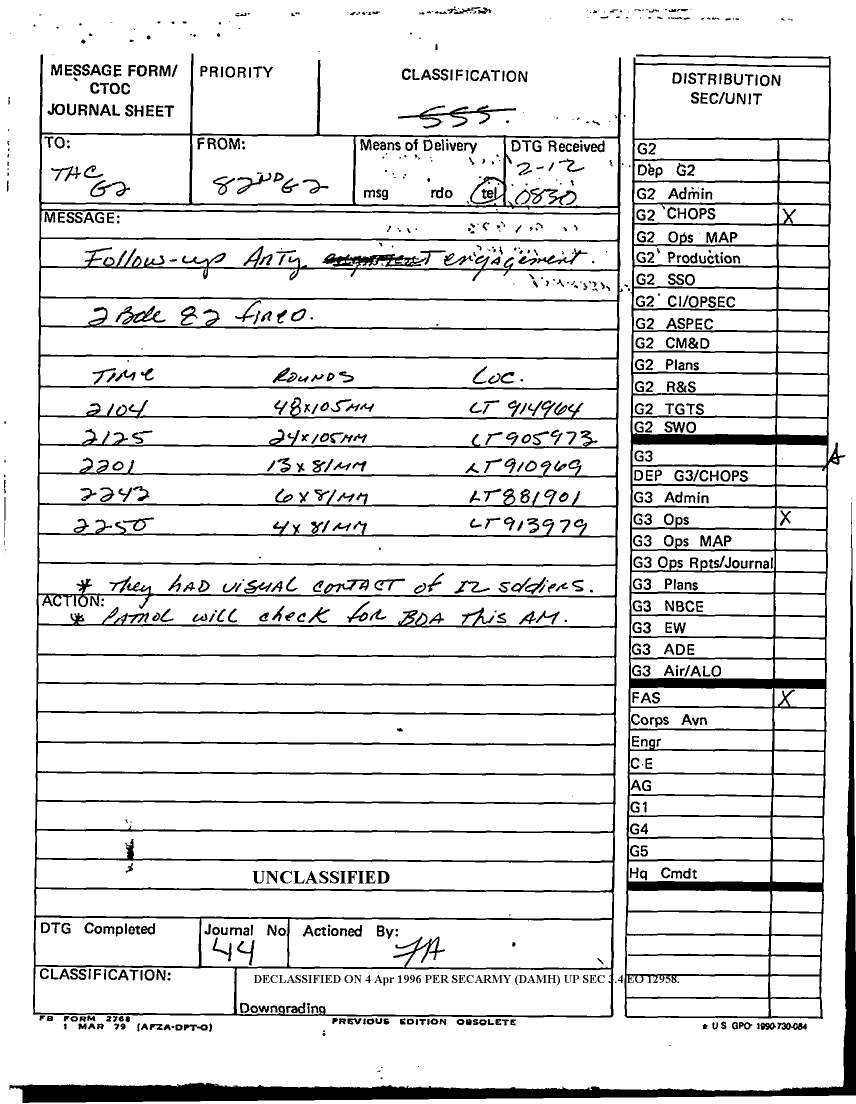 MESSAGE FORM/
CTOC
JOURNAL SHEET
PRIORITY
CLASSIFICATION
SSS.
TO:
TAC
G2
FROM:
82ND G2
Means of Delivery
msg rdo tel
DTG Received
2-12
0830
MESSAGE:
Follow-up Arty engagement.
2 Bde 82 fired.
TIME ROUNDS LOC.
2104 48x105MM LT 914964
2125 24x105MM LT905973
2201 13x81MM LT910969
2243 6x81MM LT881901
2250 4x81MM LT913979
* They HAD VISUAL CONTACT of IZ soldiers.
ACTION:
* PATROL will check for BDA This AM.
UNCLASSIFIED
DTG Completed
Journal No
44
Actioned By:
CLASSIFICATION:
DECLASSIFIED ON 4 Apr 1996 PER SECARMY (DAMH) UP SEC 3.4 EO 12958.
Downgrading
FB FORM 2768
1 MAR 79 (AFZA-DPT-O)
PREVIOUS EDITION OBSOLETE
DISTRIBUTION
SEC/UNIT
G2
Dep G2
G2 Admin
G2 CHOPS X
G2 Ops MAP
G2 Production
G2 SSO
G2 CI/OPSEC
G2 ASPEC
G2 CM&D
G2 Plans
G2 R&S
G2 TGTS
G2 SWO
G3
DEP G3/CHOPS
G3 Admin
G3 Ops X
G3 Ops MAP
G3 Ops Rpts/Journal
G3 Plans
G3 NBCE
G3 EW
G3 ADE
G3 Air/ALO
FAS X
Corps Avn
Engr
C-E
AG
G1
G4
G5
Hq Cmdt
* U S GPO 1990-730-084